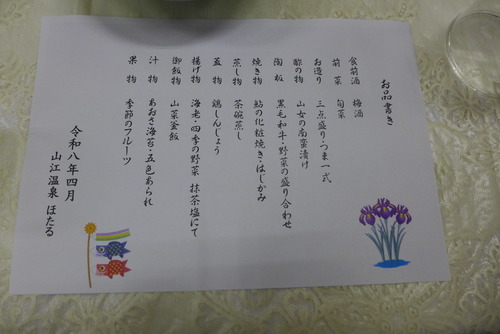 お品書き
食前酒 梅酒
前菜 旬菜
お造り 三点盛り・つま一式
酢の物 山女の南蛮漬け
陶板 黒毛和牛・野菜の盛り合わせ
焼き物 鮎の化粧焼き・はじかみ
蒸し物 茶碗蒸し
蓋物 鶏しんじょう
揚げ物 海老・四季の野菜 抹茶塩にて
御飯物 山菜釜飯
汁物 あおさ海苔・五色あられ
果物 季節のフルーツ
令和八年四月
山江温泉 ほたる